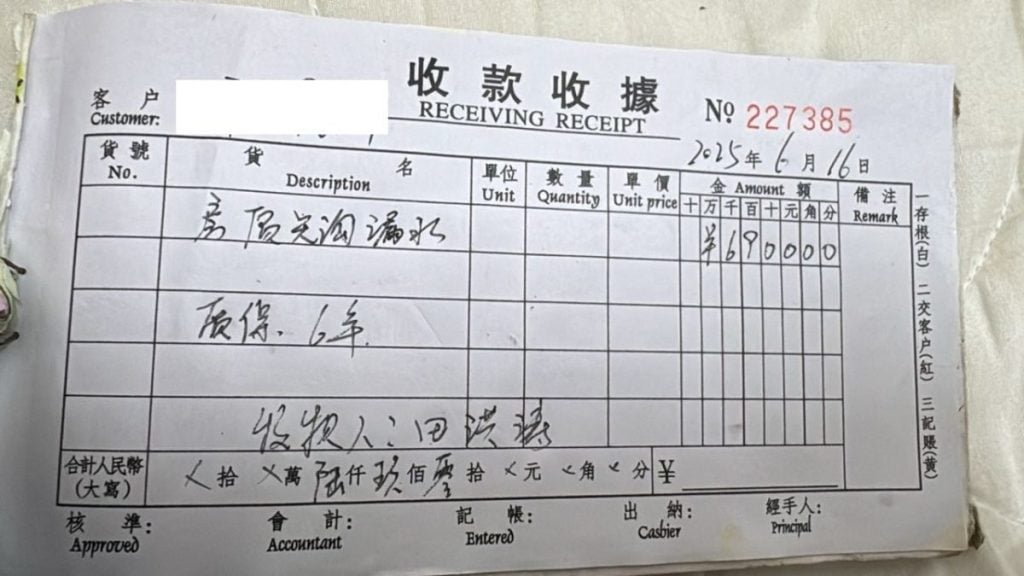 收款收據
RECEIVING RECEIPT
№ 227385
客戶
Customer:
2025年6月16日
貨號 貨名 單位 數量 單價 金額 備注
No. Description Unit Quantity Unit price Amount Remark
十万千百十元角分
房屋天沟漏水 ¥690000
质保. 6年.
收损人:田洪涛
合計人民幣(大寫) ㄨ拾ㄨ萬陆仟玖佰零拾ㄨ元ㄨ角ㄨ分 ¥
核準: 會計: 記帳: 出納: 經手人:
Approved Accountant Entered Cashier Principal
一存根(白) 二交客户(紅) 三記賬(黄)